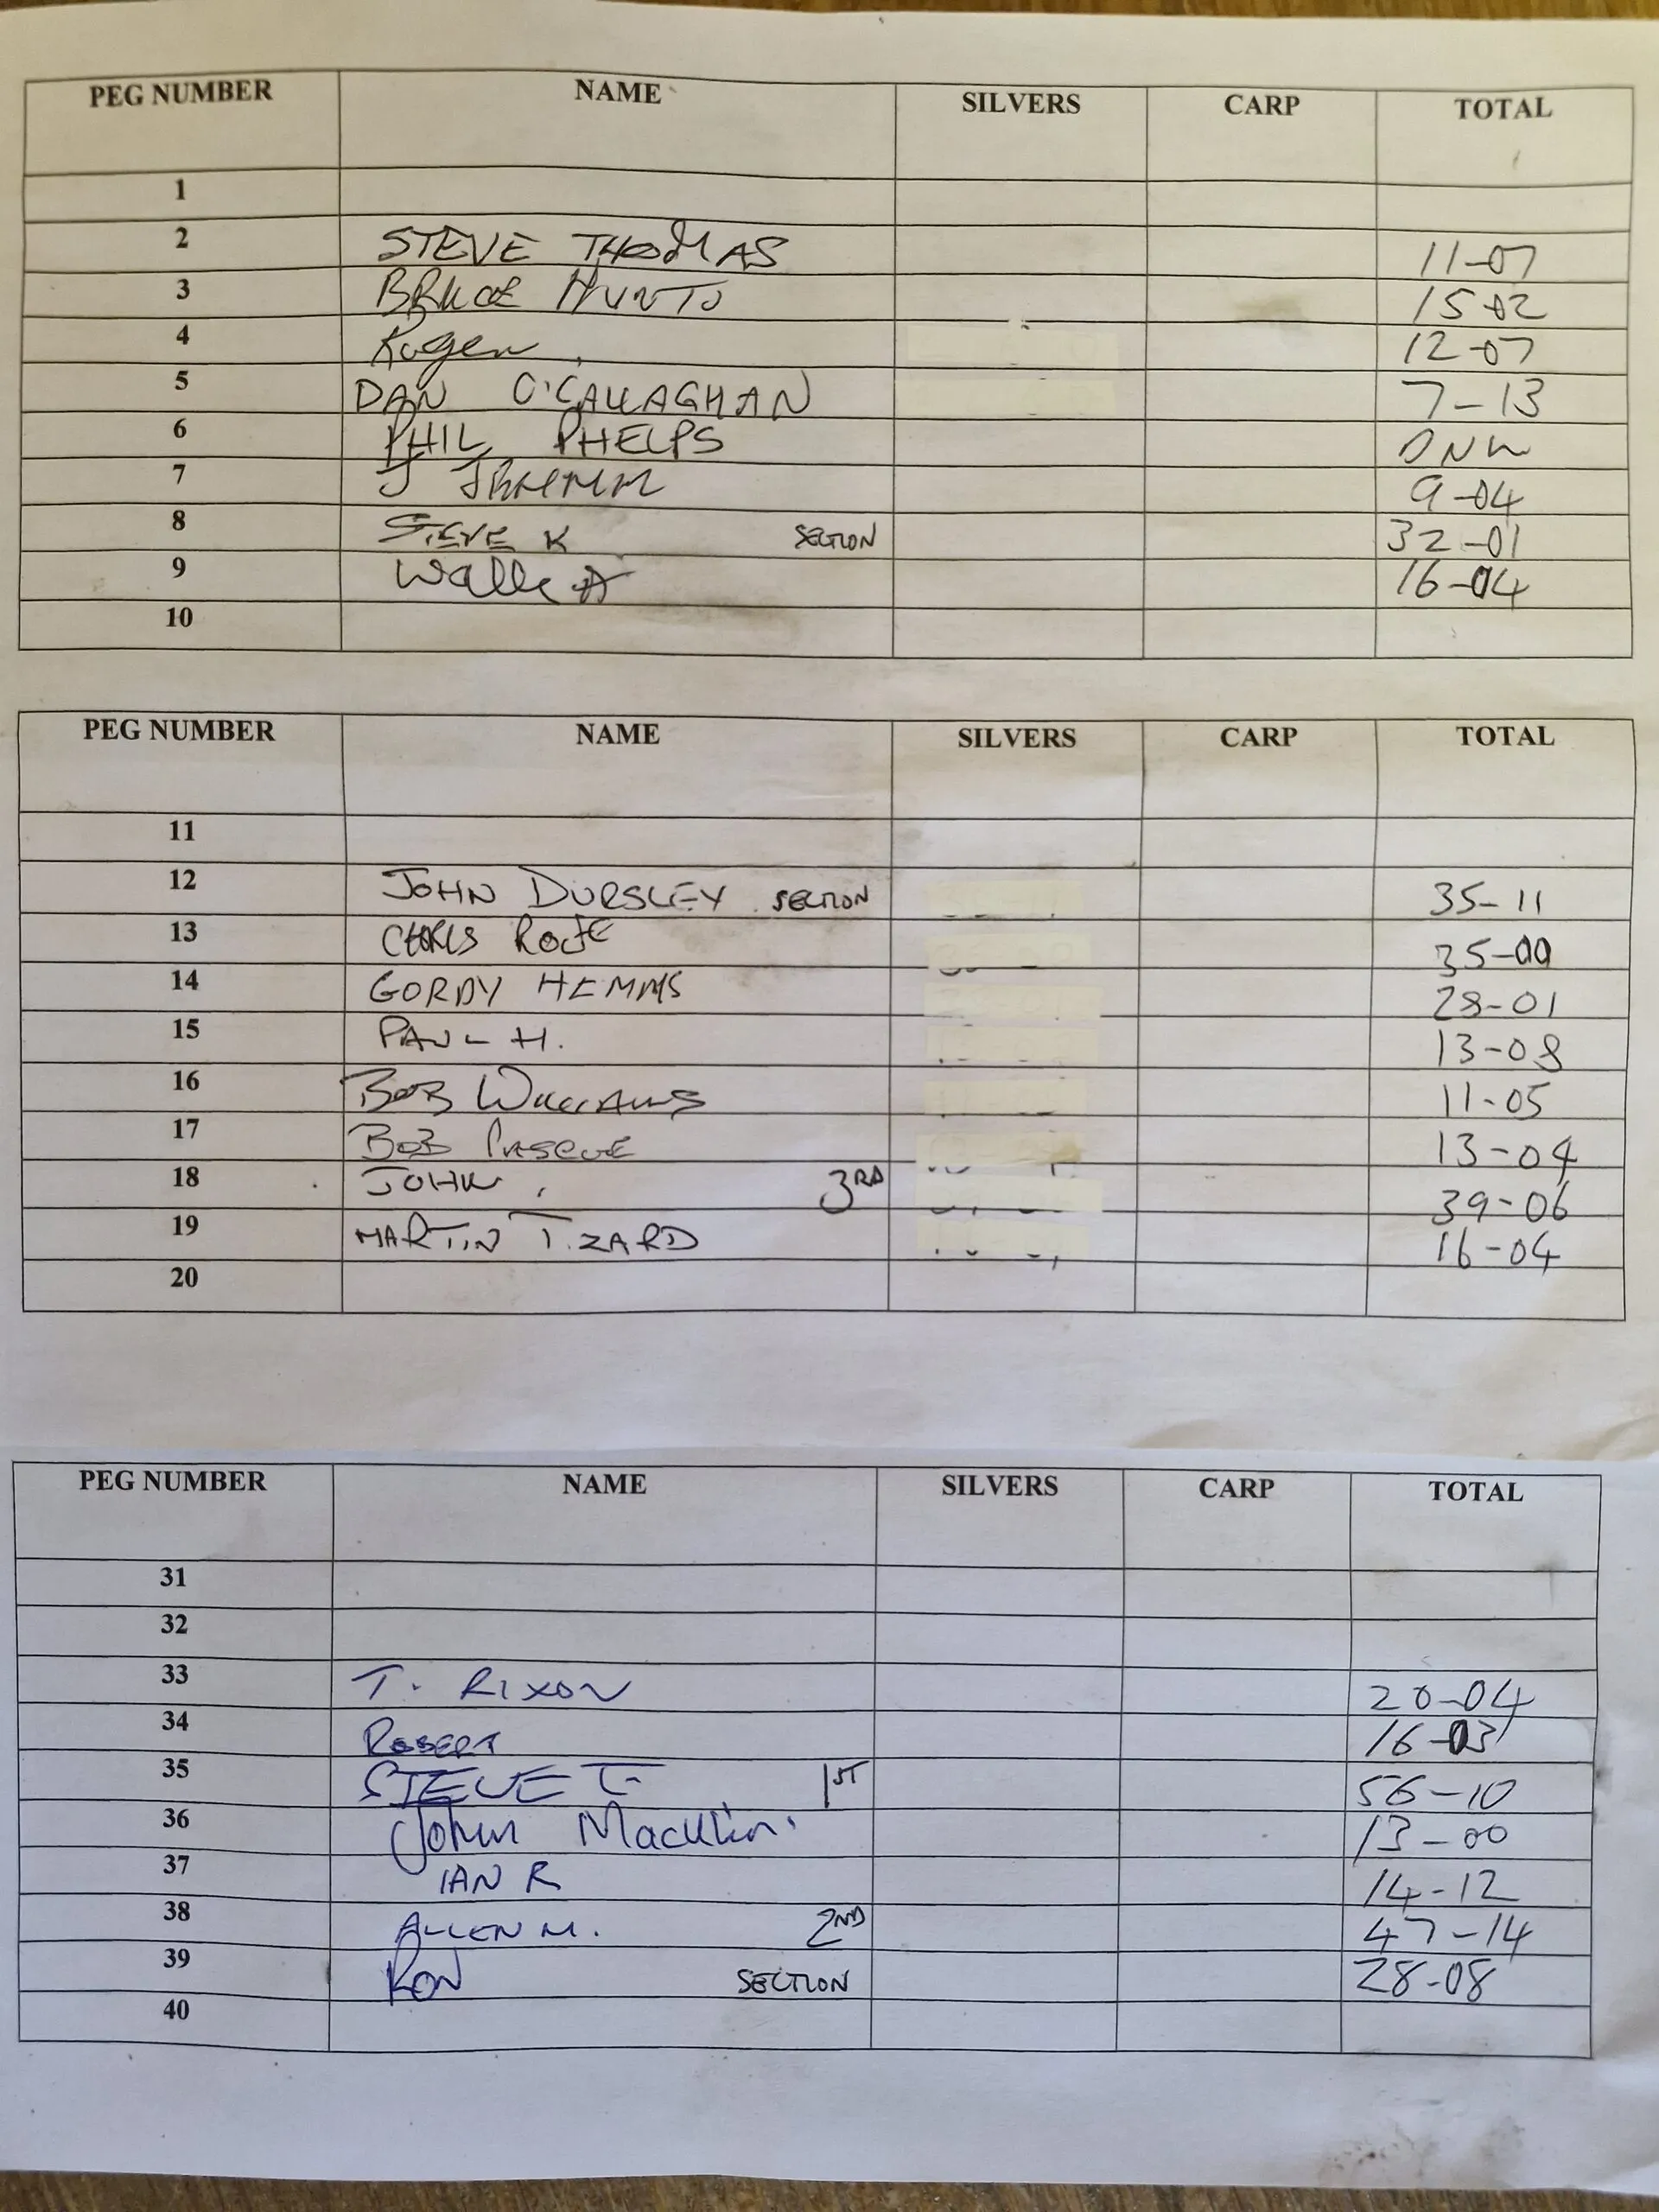 PEG NUMBER NAME SILVERS CARP TOTAL
1
2 STEVE THOMAS 11-07
3 BRUCE HUNT 15-02
4 Roger 12-07
5 DAN O'CALLAGHAN 7-13
6 PHIL PHELPS DNW
7 J 9-04
8 STEVE K SECTION 32-01
9 16-04
10
PEG NUMBER NAME SILVERS CARP TOTAL
11
12 JOHN DURSLEY SECTION 35-11
13 CHRIS 35-00
14 GORDY HEMMS 28-01
15 PAUL H. 13-08
16 BOB WILLIAMS 11-05
17 BOB PASCOE 13-04
18 JOHN 3RD 39-06
19 MARTIN TIZARD 16-04
20
PEG NUMBER NAME SILVERS CARP TOTAL
31
32
33 T. RIXON 20-04
34 ROBERT 16-03
35 STEVE T 1ST 56-10
36 John Macklin. 13-00
37 IAN R 14-12
38 ALLEN M. 2ND 47-14
39 RON SECTION 28-08
40